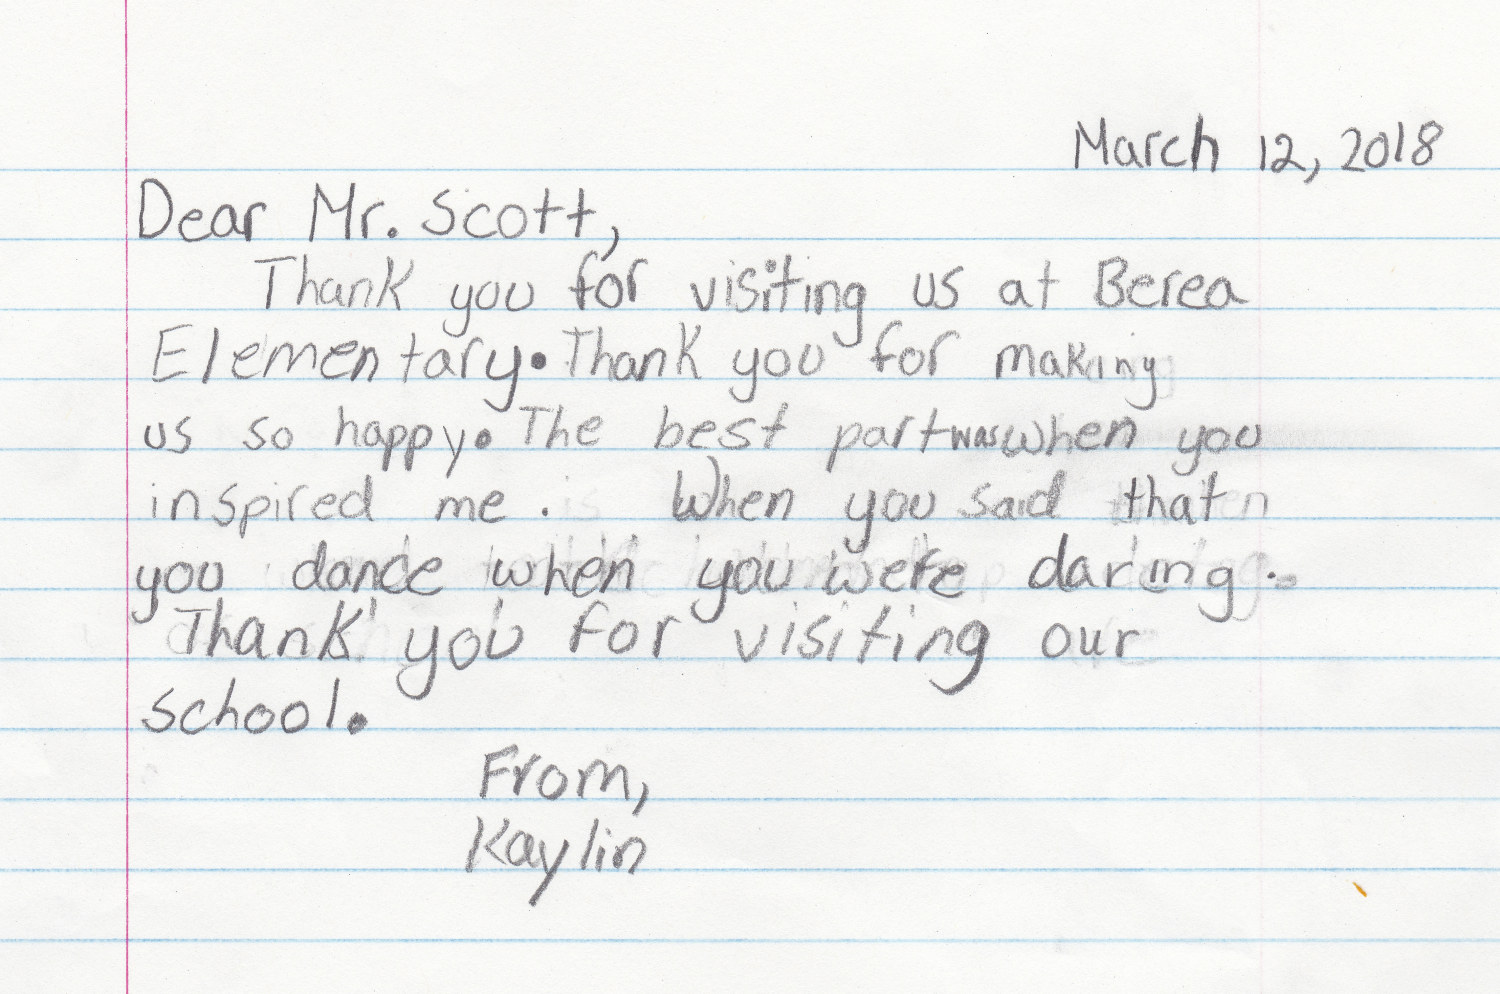 March 12, 2018
Dear Mr. Scott,
Thank you for visiting us at Berea
Elementary. Thank you for making
us so happy. The best part was when you
inspired me. When you said that
you dance when you were daring.
Thank you for visiting our
school.
From,
Kaylin